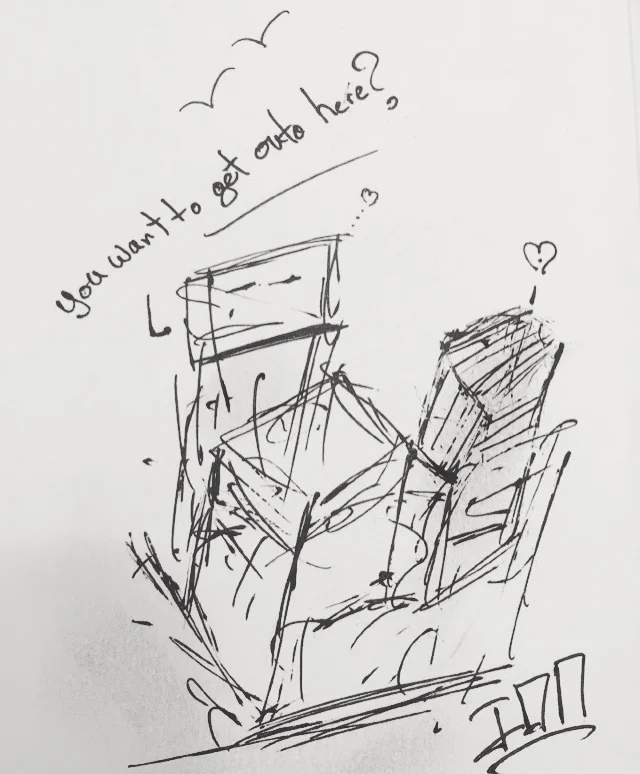 You want to get outo here?